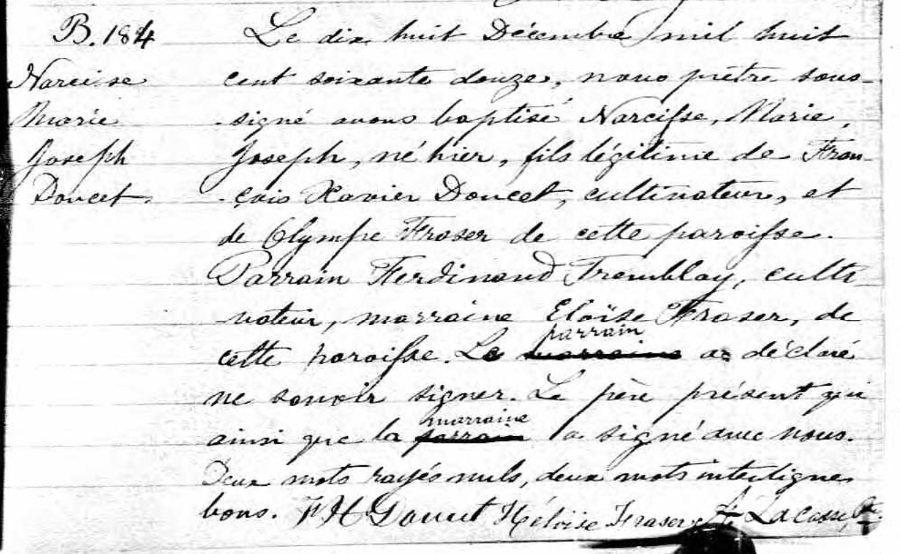 B. 184
Narcisse
Marie
Joseph
Doucet.
Le dix huit Décembre mil huit
cent soixante douze, nous prêtre sous-
-signé avons baptisé Narcisse, Marie,
Joseph, né hier, fils légitime de Fran-
-çois Xavier Doucet, cultivateur, et
de Olympe Fraser de cette paroisse.
Parrain Ferdinand Tremblay, culti-
-vateur, marraine Eloïse Fraser, de
parrain
cette paroisse. Le marraine a déclaré
ne savoir signer. Le père présent qui
marraine
ainsi que la parrain a signé avec nous.
Deux mots rayés nuls, deux mots interlignes
bons. FH Doucet Héloïse Fraser Lacasse, Ptr.